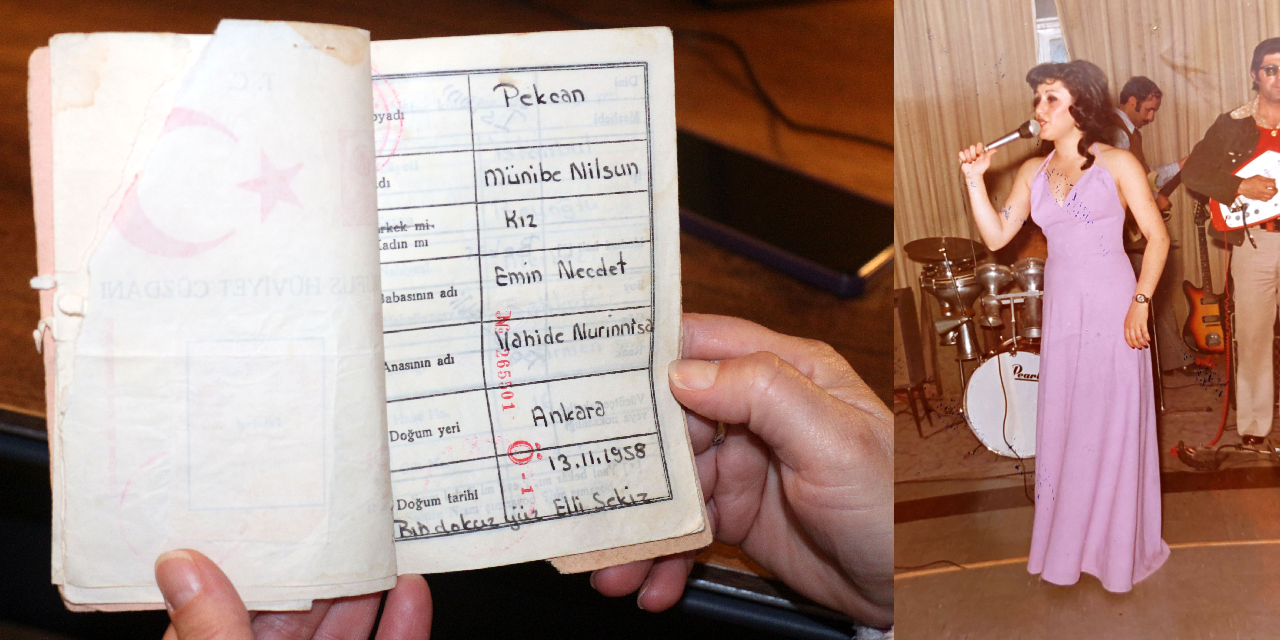 T.C.
FUS HÜVİYET CÜZDANI
oyadı Pekcan
dı Münibe Nilsun
rkek mi Kız
Kadın mı
Babasının adı Emin Necdet
Anasının adı Nahide Nurinnisa
№ 265501
Doğum yeri Ankara
Ö - 1
Doğum tarihi 13.11.1958
Bin dokuz yüz Elli Sekiz
Pearl